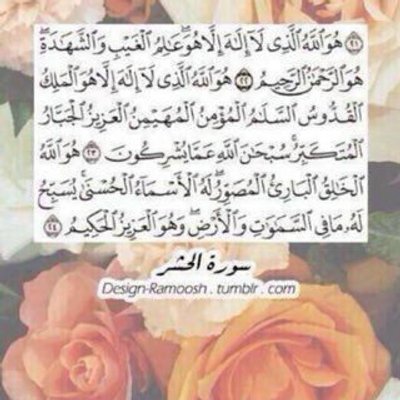 ﴿٢١﴾ هُوَ ٱللَّهُ ٱلَّذِى لَآ إِلَٰهَ إِلَّا هُوَ ۖ عَٰلِمُ ٱلْغَيْبِ وَٱلشَّهَٰدَةِ ۖ
هُوَ ٱلرَّحْمَٰنُ ٱلرَّحِيمُ ﴿٢٢﴾ هُوَ ٱللَّهُ ٱلَّذِى لَآ إِلَٰهَ إِلَّا هُوَ ٱلْمَلِكُ
ٱلْقُدُّوسُ ٱلسَّلَٰمُ ٱلْمُؤْمِنُ ٱلْمُهَيْمِنُ ٱلْعَزِيزُ ٱلْجَبَّارُ
ٱلْمُتَكَبِّرُ ۚ سُبْحَٰنَ ٱللَّهِ عَمَّا يُشْرِكُونَ ﴿٢٣﴾ هُوَ ٱللَّهُ
ٱلْخَٰلِقُ ٱلْبَارِئُ ٱلْمُصَوِّرُ ۖ لَهُ ٱلْأَسْمَآءُ ٱلْحُسْنَىٰ ۚ يُسَبِّحُ
لَهُۥ مَا فِى ٱلسَّمَٰوَٰتِ وَٱلْأَرْضِ ۖ وَهُوَ ٱلْعَزِيزُ ٱلْحَكِيمُ ﴿٢٤﴾
سورة الحشر
Design-Ramoosh . tumblr . com